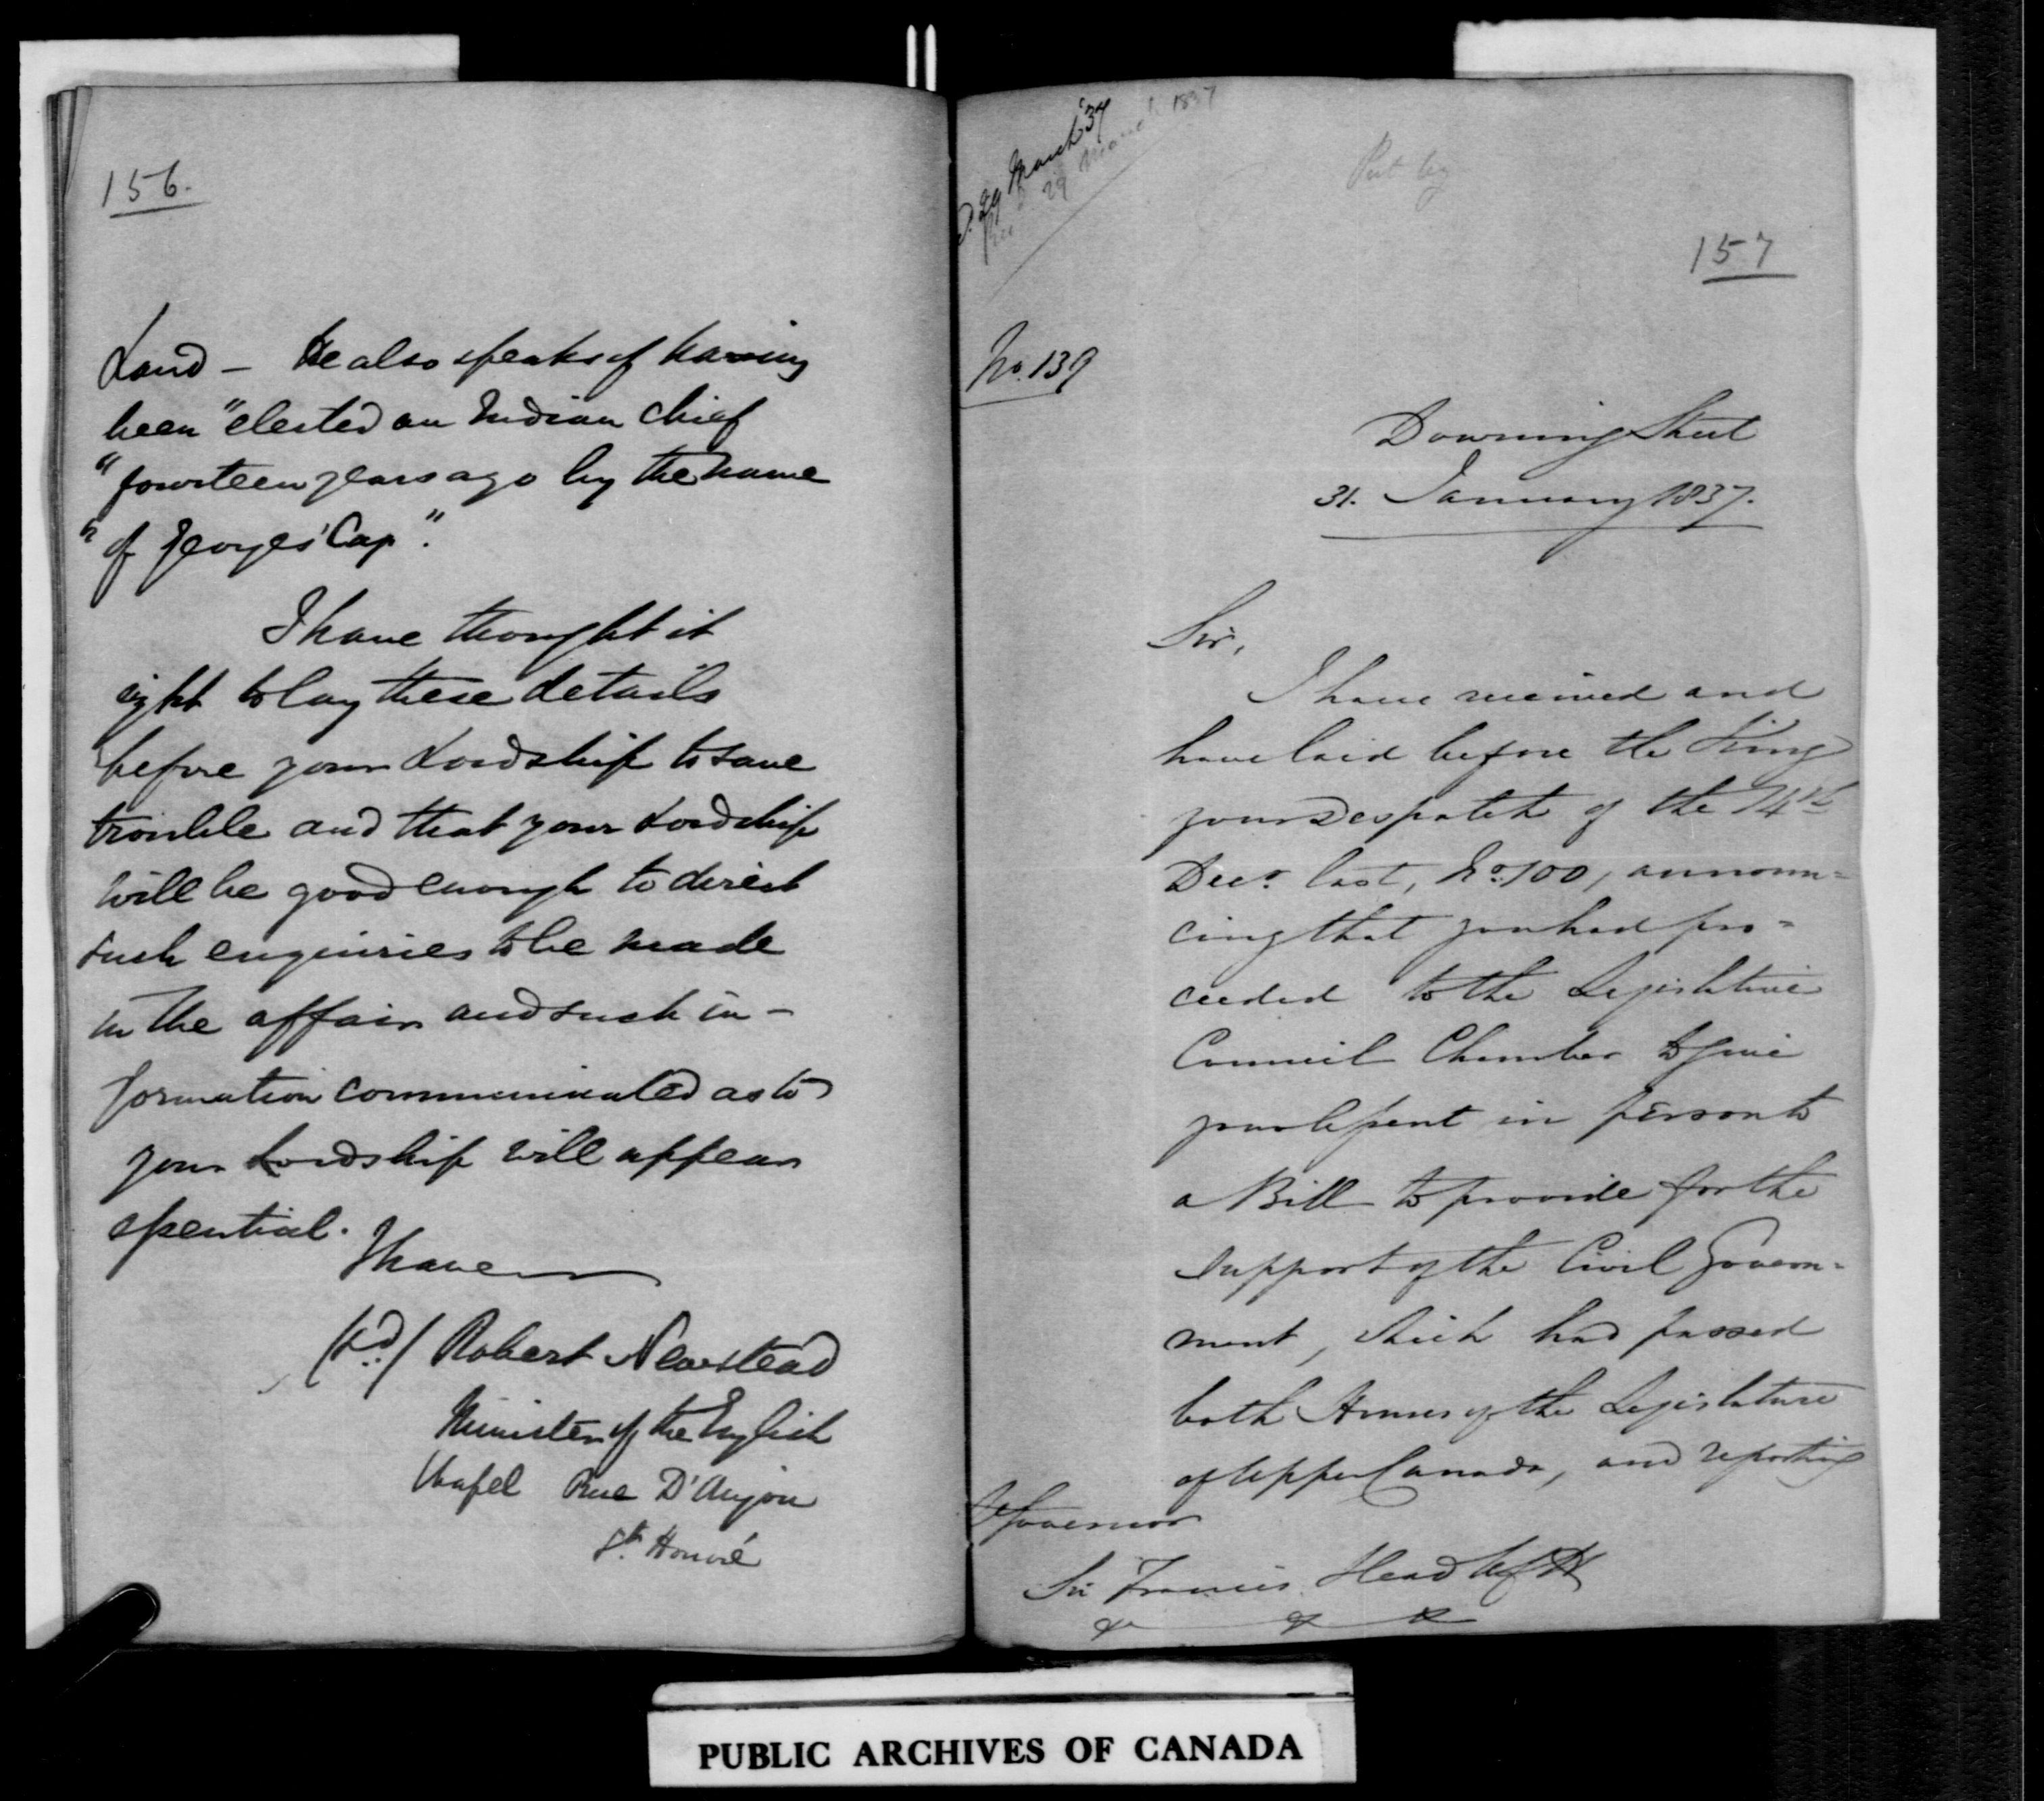 156.
Land — He also speaks of having
been "elected an Indian Chief
"fourteen years ago by the name
"of Georges' Cap".
I have thought it
right to lay these details
before your Lordship to save
trouble and that your Lordship
will be good enough to direct
such enquiries to be made
in the affair and such in-
formation communicated as to
your Lordship will appear
essential.
I have
(sd) Robert Newstead
Minister of the English
Chapel Rue D'Anjou
St. Honoré
29 March '37
29 March 1837
Put by
157
No. 139
Downing Street
31. January 1837.
Sir,
I have received and
have laid before the King
your Despatch of the 14th
Decr. last, No. 100, announ=
cing that you had pro=
ceeded to the Legislative
Council Chamber to give
your assent in person to
a Bill to provide for the
support of the Civil Govern=
ment, which had passed
both Houses of the Legislature
of Upper Canada, and reporting
Governor
Sir Francis Head
& & &
PUBLIC ARCHIVES OF CANADA